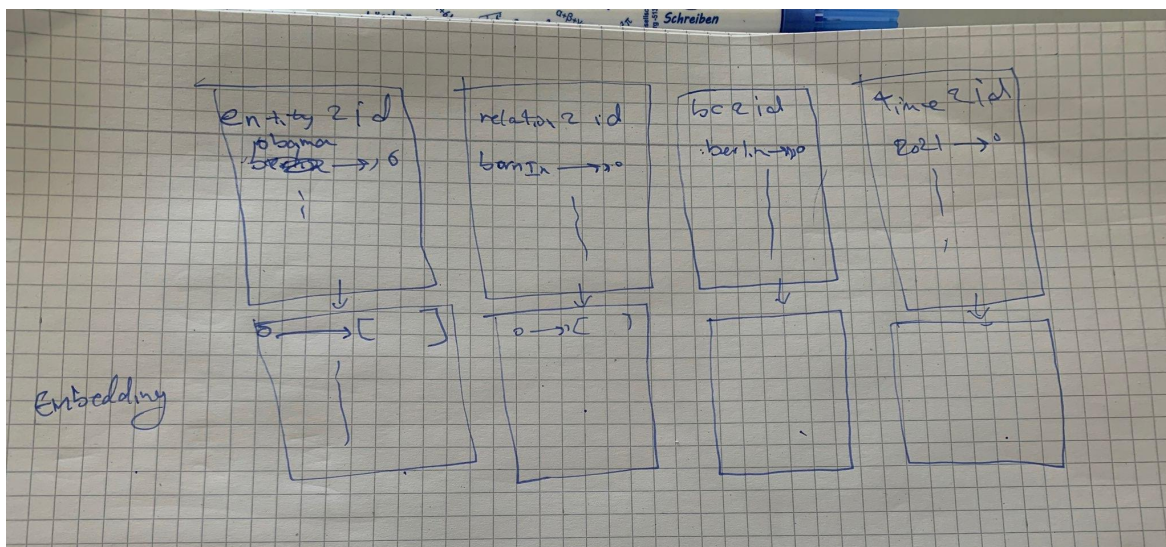 Schreiben
entity2id
obama → 0
relation2id
bornIn → 0
loc2id
berlin → 0
time2id
2021 → 0
0 → [ ]
0 → [ ]
Embedding